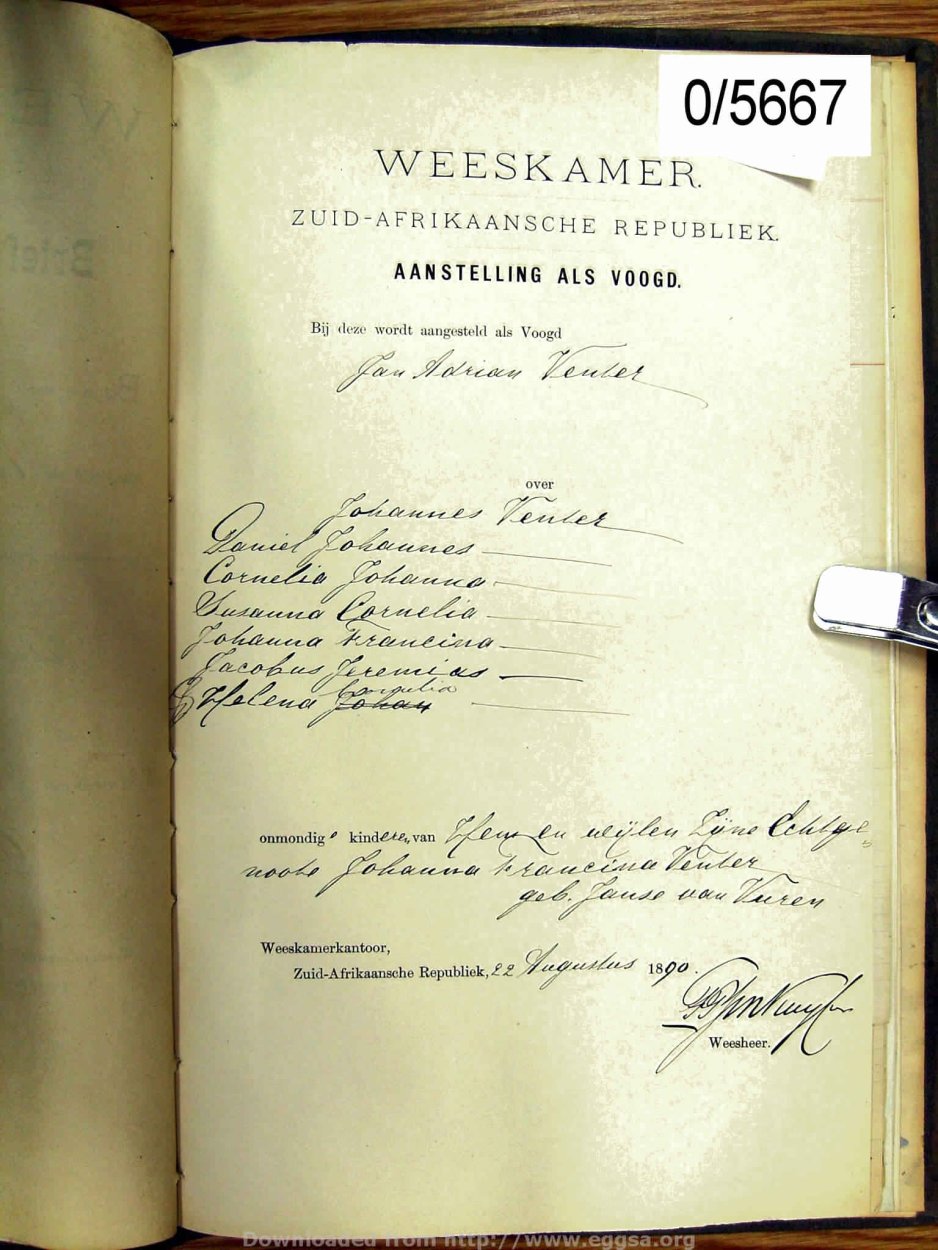 0/5667
WEESKAMER.
ZUID-AFRIKAANSCHE REPUBLIEK.
AANSTELLING ALS VOOGD.
Bij deze wordt aangesteld als Voogd
Jan Adrian Venter
over
Johannes Venter
Daniel Johannes
Cornelia Johanna
Susanna Cornelia
Johanna Francina
Jacobus Jeremias
Cornelia
Helena Johan
onmondige kinderen van Hem en wijlen Zijne Echtge„
noote Johanna Francina Venter
geb. Janse van Vuren
Weeskamerkantoor,
Zuid-Afrikaansche Republiek, 22 Augustus 1890.
Weesheer.
Downloaded from http://www.eggsa.org